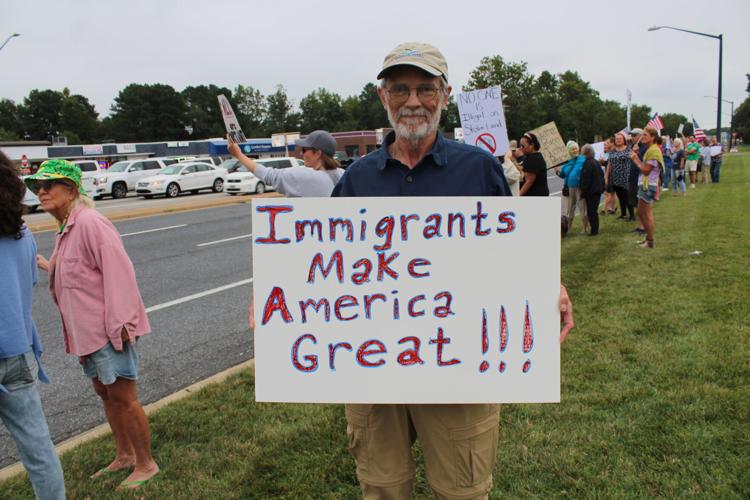 Immigrants
Make
America
Great !!!
NO ONE
is
Illegal on
Stolen Land